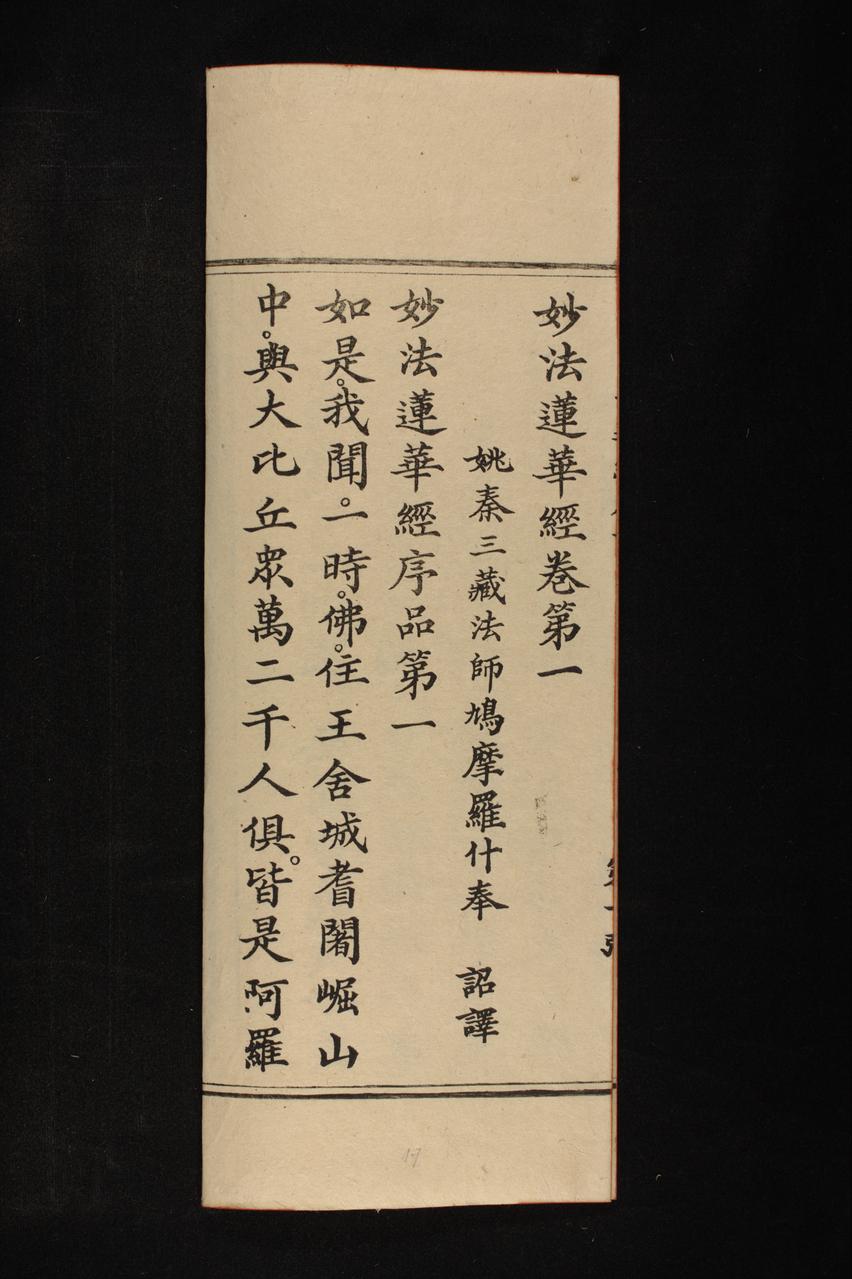 妙法蓮華經卷第一
姚秦三藏法師鳩摩羅什奉　詔譯
妙法蓮華經序品第一
如是。我聞。一時。佛。住王舍城耆闍崛山
中。與大比丘眾萬二千人俱。皆是阿羅
17